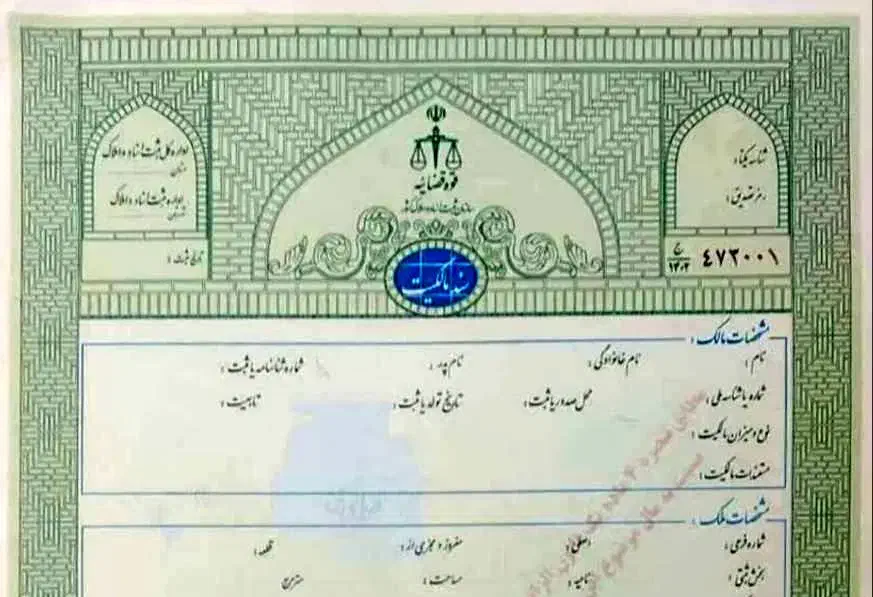 قوه قضائیه
سازمان ثبت اسناد و املاک کشور
سند مالکیت
شناسه یکتا:
رمز تصدیق:
ج
۱۴۰۲ ۴۷۲۰۰۱
اداره کل ثبت اسناد و املاک
استان
اداره ثبت اسناد و املاک
شهرستان
تاریخ ثبت:
مشخصات مالک:
نام: نام خانوادگی: نام پدر: شماره شناسنامه یا ثبت:
شماره یا شناسه ملی: محل صدور یا ثبت: تاریخ تولد یا ثبت: تابعیت:
نوع و میزان مالکیت:
مستندات مالکیت:
مشخصات ملک:
شماره فرعی: اصلی: مفروز و مجزی از: قطعه:
بخش ثبتی: ناحیه: مساحت: مترمربع